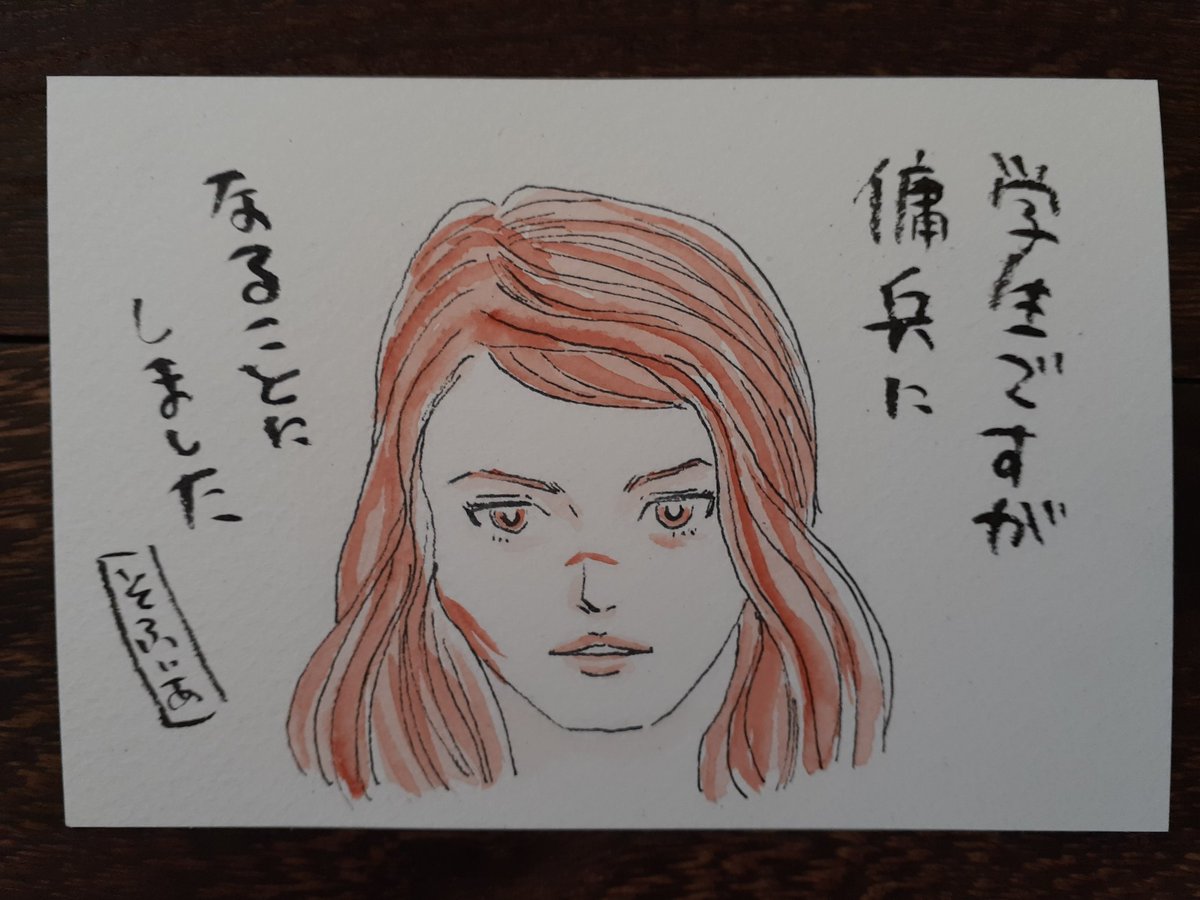 学生ですが
傭兵に
なることに
しました
そふぃあ